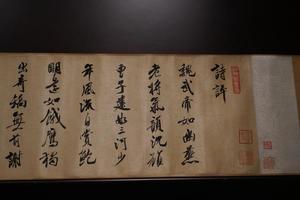 詩評
魏武帝如幽燕
老將氣韻沉雄
曹子建如三河少
年風流自賞鮑
明遠如饑鷹獨
出奇矯無前謝